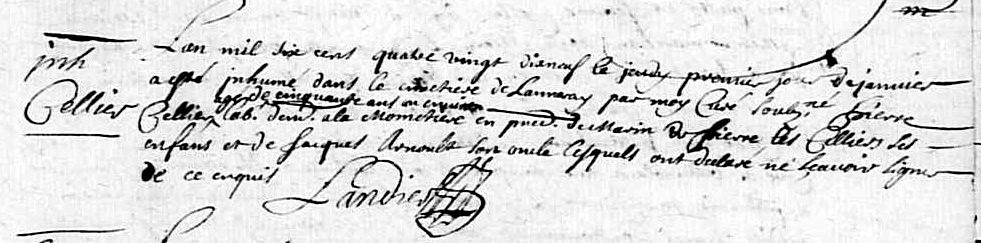 m
inh
Cellier
L'an mil six cens quatre vingt dixneuf le jeudy premier jour de janvier
a esté inhumé dans le cimetiere de Lanneray par moy Curé soubs.né Pierre
agé de cinquante ans ou environ
Cellier lab.r dem.t a la Mometiere en pnce. de Marin et Pierre les Celliers ses
enfans et de Jacques Arnoult son oncle lesquels ont declaré ne sçavoir signer
de ce enquis
Landier